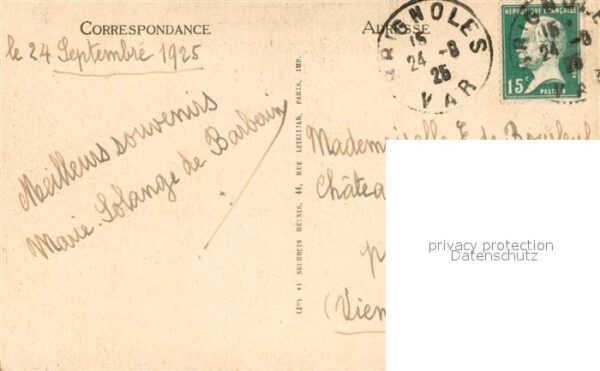 CORRESPONDANCE
le 24 Septembre 1925
Meilleurs souvenirs
Marie. Solange de Barbarin
LÉVY et NEURDEIN RÉUNIS, 44, RUE LETELLIER, PARIS, IMP.
ADRESSE
BRIGNOLES
15
24 -9
25
VAR
RÉPUBLIQUE FRANÇAISE
15c
PASTEUR
Mademoiselle E. de
Châtea
p
(Vien
privacy protection
Datenschutz